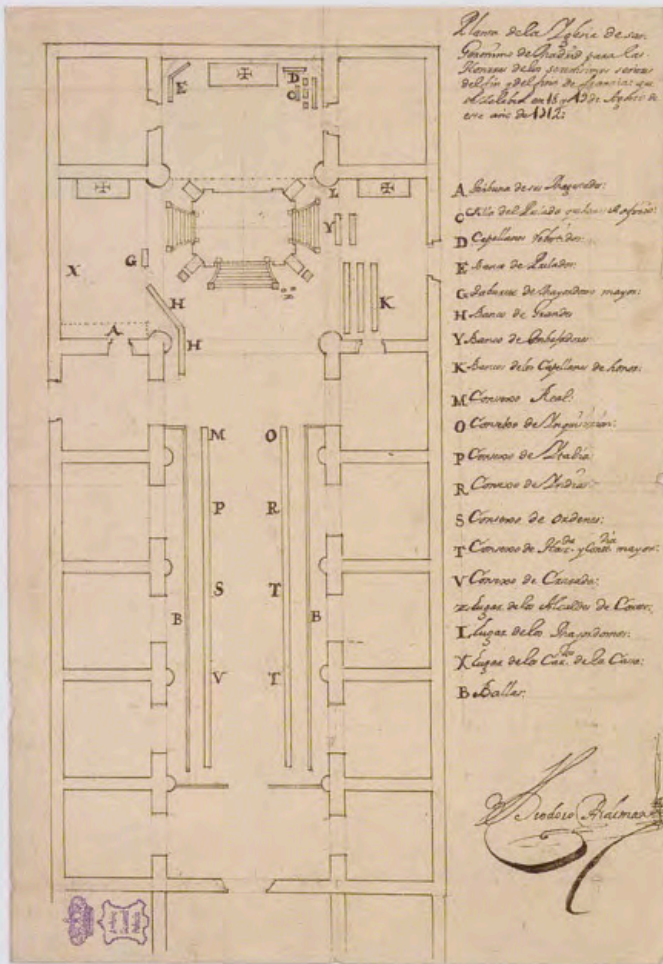 Planta de la Yglesia de san
Geronimo de Madrid para las
Honrras de los serenisimos señores
delfin y delfina de Francia: que
se zelebra en 18 y 19 de Agosto de
este año de 1712:
A Tribuna de sus Magestades:
C Silla del Prelado
D Capellanes
E Banco de Prelados:
G Taburete de Mayordomo mayor:
H Banco de Grandes
Y Banco de Embajadores:
K Bancos de los Capellanes de honor:
M Consexo Real:
O Consexo de Ynquisizion:
P Consexo de Ytalia:
R Consexo de Yndias:
S Consexo de ordenes:
T Consexo de Haz.da y Cont.dia mayor:
V Consexo de Cruzada:
Z Lugar de los Alcaldes de Corte:
L Lugar de los Mayordomos:
X Lugar de los de la Casa:
B Vallas:
Teodoro Ardemans
E
D
C
L
Y
X
G
H
K
A
H
M
O
P
R
S
T
B
B
V
T